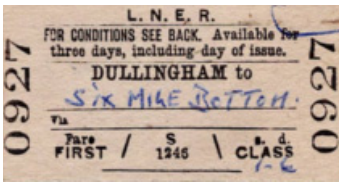 L. N. E. R.
FOR CONDITIONS SEE BACK. Available for
three days, including day of issue.
DULLINGHAM to
SIX MILE BOTTOM.
Via
Fare S s. d.
FIRST / 1245 \ CLASS
1-6
0927
0927